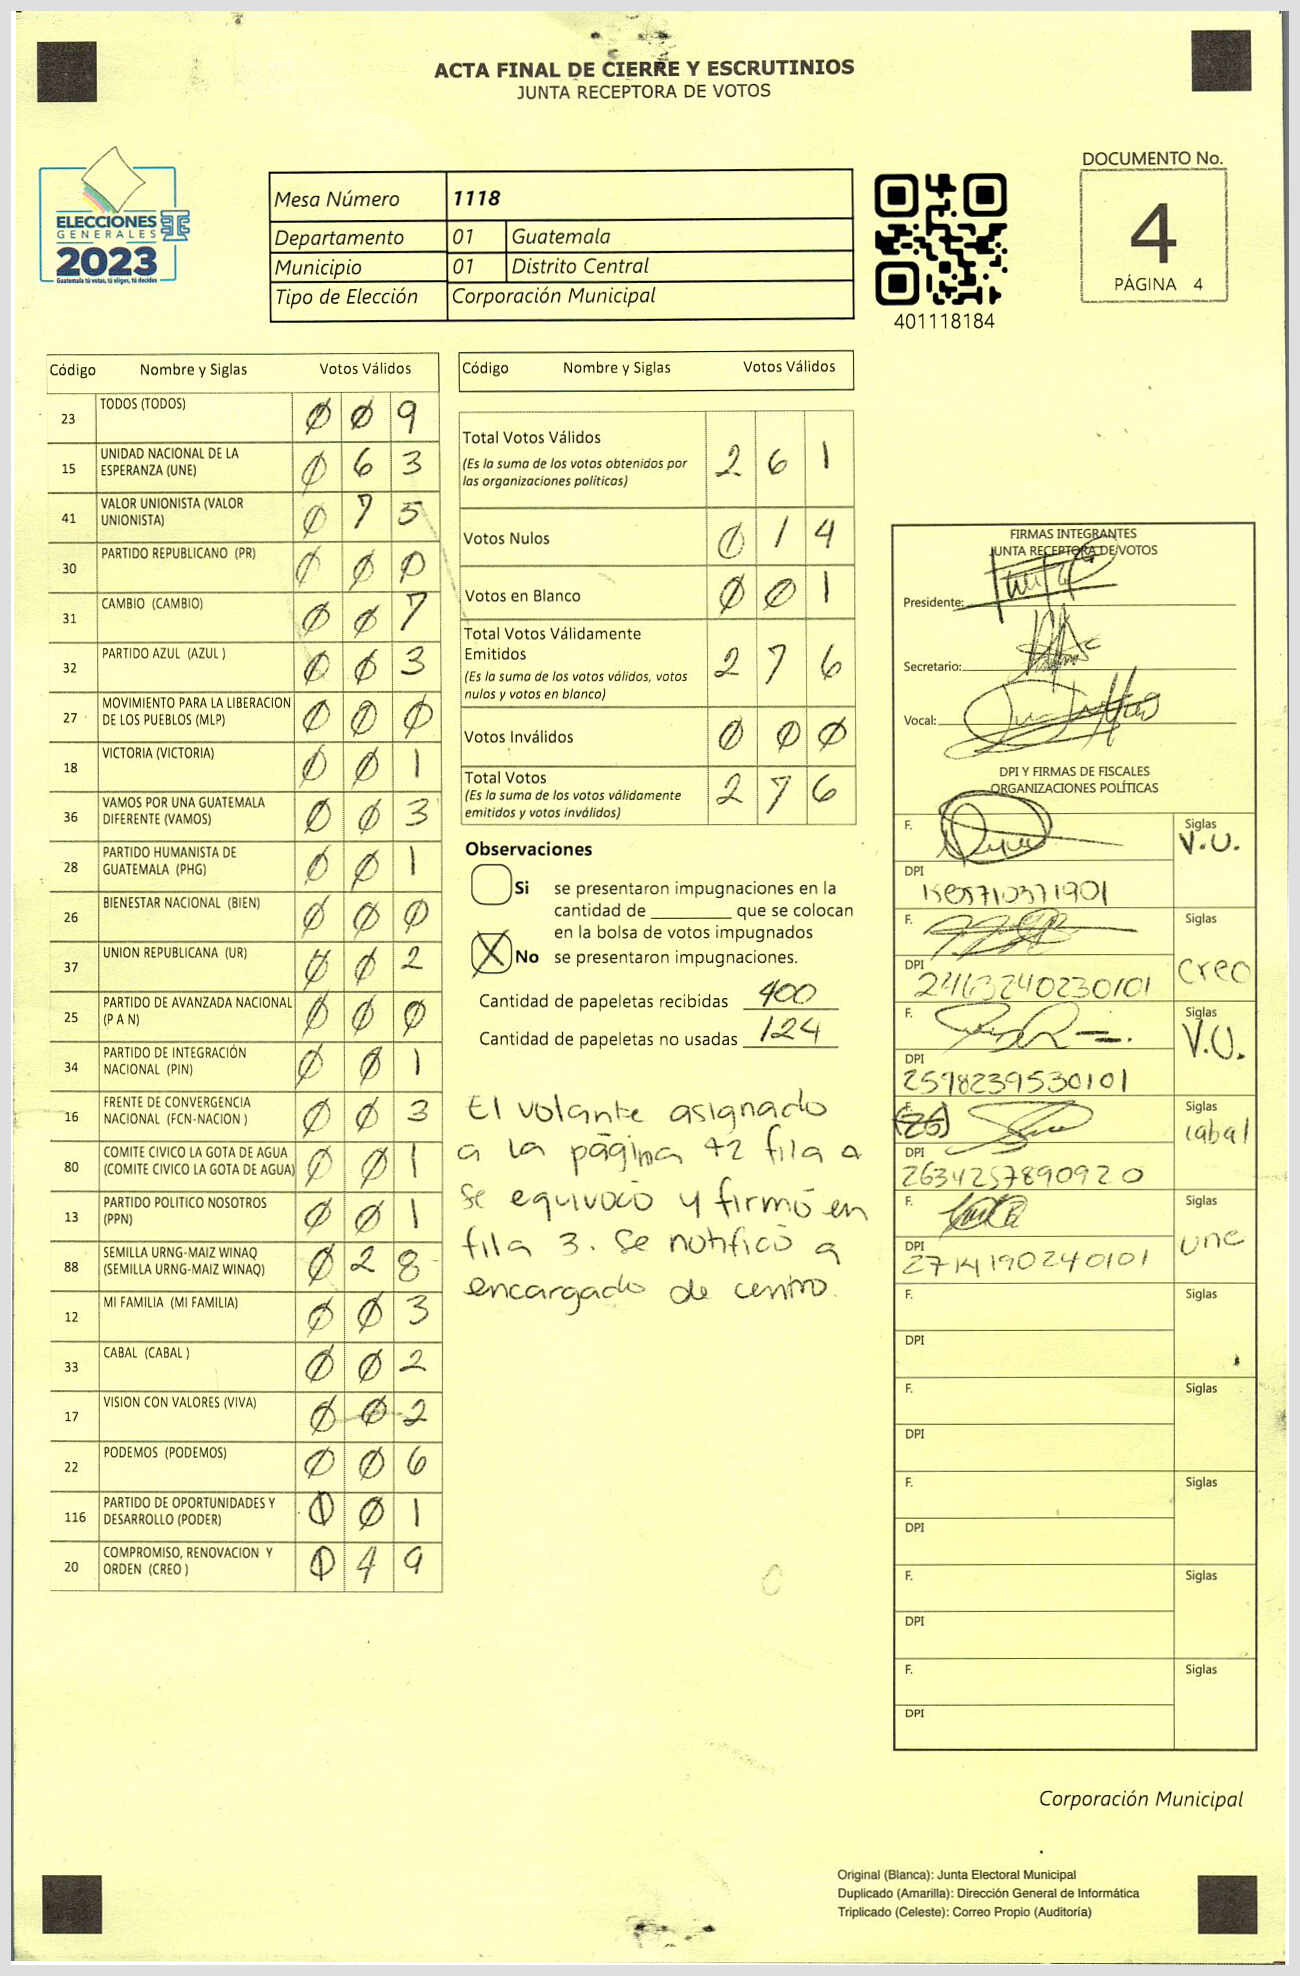 ACTA FINAL DE CIERRE Y ESCRUTINIOS
JUNTA RECEPTORA DE VOTOS
ELECCIONES
GENERALES
2023
Guatemala tú votas, tú eliges, tú decides
Mesa Número 1118
Departamento 01 Guatemala
Municipio 01 Distrito Central
Tipo de Elección Corporación Municipal
401118184
DOCUMENTO No.
4
PÁGINA 4
Código Nombre y Siglas Votos Válidos
23 TODOS (TODOS) 0 0 9
15 UNIDAD NACIONAL DE LA ESPERANZA (UNE) 0 6 3
41 VALOR UNIONISTA (VALOR UNIONISTA) 0 7 5
30 PARTIDO REPUBLICANO (PR) 0 0 0
31 CAMBIO (CAMBIO) 0 0 7
32 PARTIDO AZUL (AZUL ) 0 0 3
27 MOVIMIENTO PARA LA LIBERACION DE LOS PUEBLOS (MLP) 0 0 0
18 VICTORIA (VICTORIA) 0 0 1
36 VAMOS POR UNA GUATEMALA DIFERENTE (VAMOS) 0 0 3
28 PARTIDO HUMANISTA DE GUATEMALA (PHG) 0 0 1
26 BIENESTAR NACIONAL (BIEN) 0 0 0
37 UNION REPUBLICANA (UR) 0 0 2
25 PARTIDO DE AVANZADA NACIONAL (P A N) 0 0 0
34 PARTIDO DE INTEGRACIÓN NACIONAL (PIN) 0 0 1
16 FRENTE DE CONVERGENCIA NACIONAL (FCN-NACION ) 0 0 3
80 COMITE CIVICO LA GOTA DE AGUA (COMITE CIVICO LA GOTA DE AGUA) 0 0 1
13 PARTIDO POLITICO NOSOTROS (PPN) 0 0 1
88 SEMILLA URNG-MAIZ WINAQ (SEMILLA URNG-MAIZ WINAQ) 0 2 8
12 MI FAMILIA (MI FAMILIA) 0 0 3
33 CABAL (CABAL ) 0 0 2
17 VISION CON VALORES (VIVA) 0 0 2
22 PODEMOS (PODEMOS) 0 0 6
116 PARTIDO DE OPORTUNIDADES Y DESARROLLO (PODER) 0 0 1
20 COMPROMISO, RENOVACION Y ORDEN (CREO ) 0 4 9
Código Nombre y Siglas Votos Válidos
Total Votos Válidos 2 6 1
(Es la suma de los votos obtenidos por
las organizaciones políticas)
Votos Nulos 0 1 4
Votos en Blanco 0 0 1
Total Votos Válidamente
Emitidos 2 7 6
(Es la suma de los votos válidos, votos
nulos y votos en blanco)
Votos Inválidos 0 0 0
Total Votos 2 7 6
(Es la suma de los votos válidamente
emitidos y votos inválidos)
Observaciones
Si se presentaron impugnaciones en la
cantidad de ________ que se colocan
en la bolsa de votos impugnados
X No se presentaron impugnaciones.
Cantidad de papeletas recibidas 400
Cantidad de papeletas no usadas 124
El volante asignado
a la página 42 fila a
se equivocó y firmó en
fila 3. Se notificó a
encargado de centro.
FIRMAS INTEGRANTES
JUNTA RECEPTORA DE VOTOS
Presidente:
Secretario:
Vocal:
DPI Y FIRMAS DE FISCALES
ORGANIZACIONES POLÍTICAS
F. Siglas
V.U.
DPI
F. Siglas
DPI Creo
2463240230101
F. Siglas
V.U.
DPI
2598239530101
Siglas
cabal
DPI
2634257890920
F. Siglas
une
DPI
2714190240101
F. Siglas
DPI
F. Siglas
DPI
F. Siglas
DPI
F. Siglas
DPI
F. Siglas
DPI
Corporación Municipal
Original (Blanca): Junta Electoral Municipal
Duplicado (Amarilla): Dirección General de Informática
Triplicado (Celeste): Correo Propio (Auditoría)